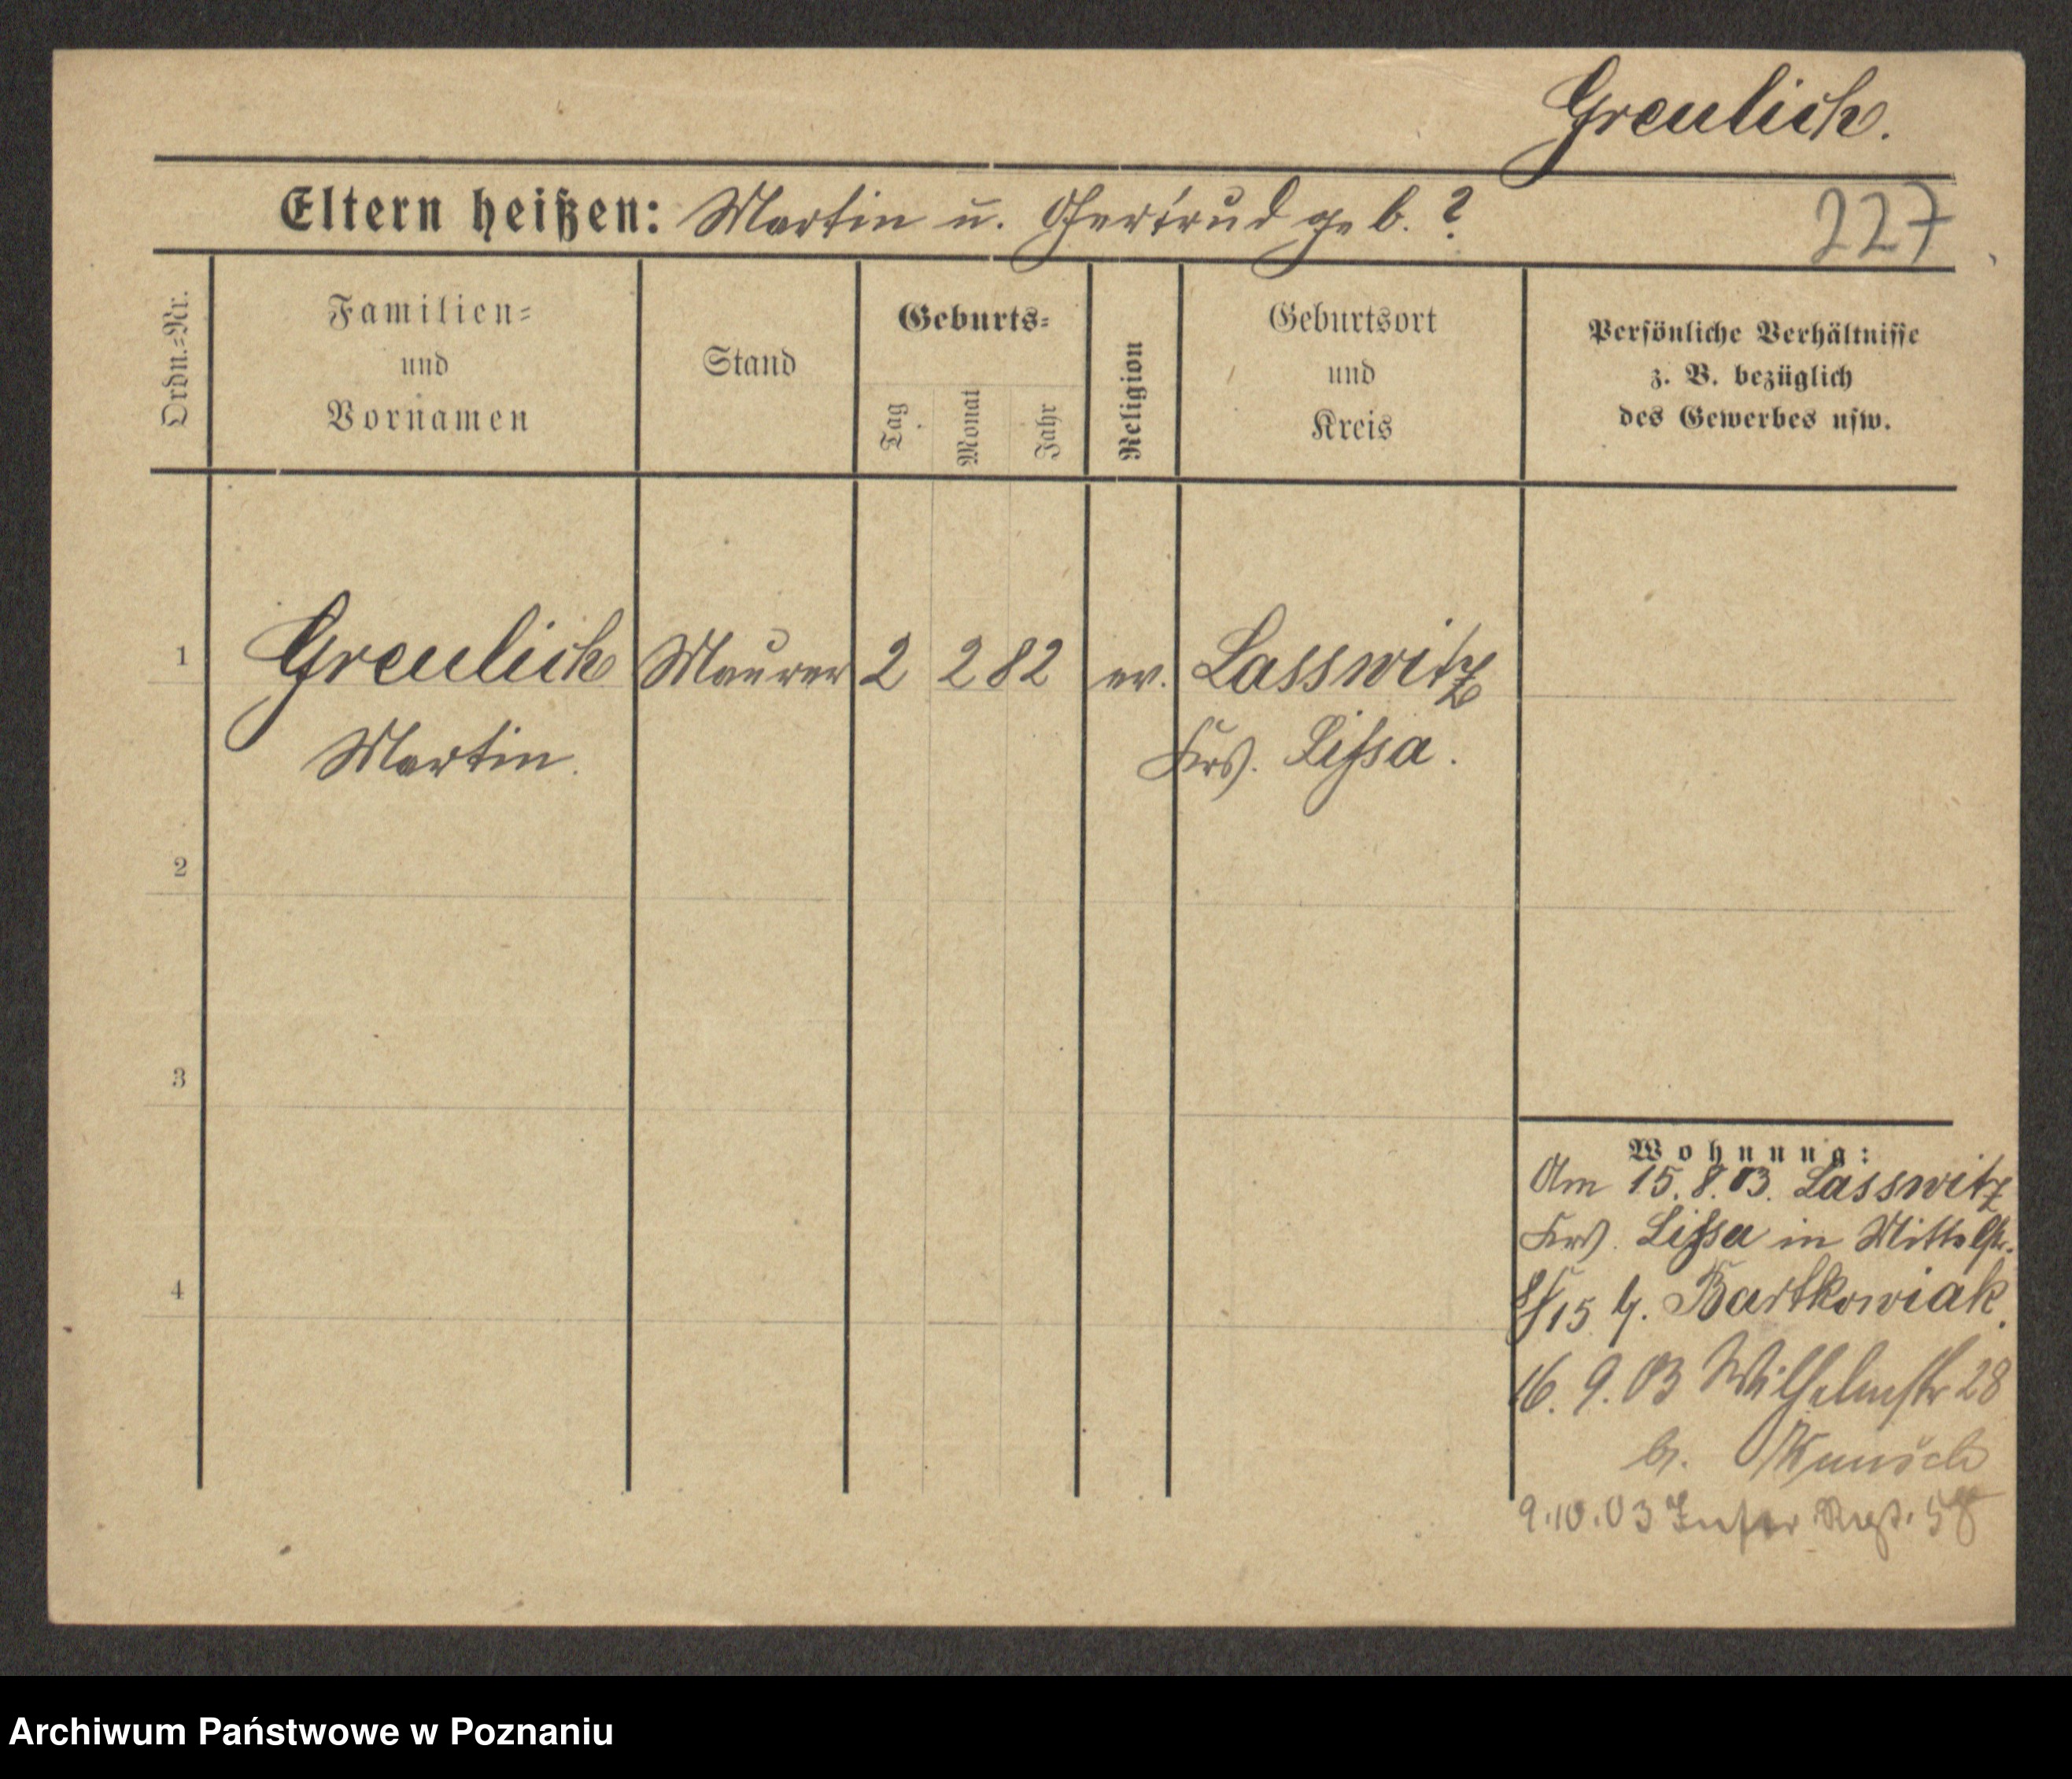 Greulich.
Eltern heißen: Martin u. Gertrud geb. ?
227
Ordn.-Nr.
Familien-
und
Vornamen
Stand
Geburts-
Tag
Monat
Jahr
Religion
Geburtsort
und
Kreis
Persönliche Verhältnisse
z. B. bezüglich
des Gewerbes usw.
1 Greulich Maurer 2 2 82 ev. Lasswitz
Martin. Krs. Lissa.
2
3
4
Wohnung:
Am 15.8.03. Lasswitz
Krs. Lissa in Mittelstr.
8/15 b. Bartkowiak.
16. 9. 03 Wilhelmstr 28
b.
9.10.03 58
Archiwum Państwowe w Poznaniu